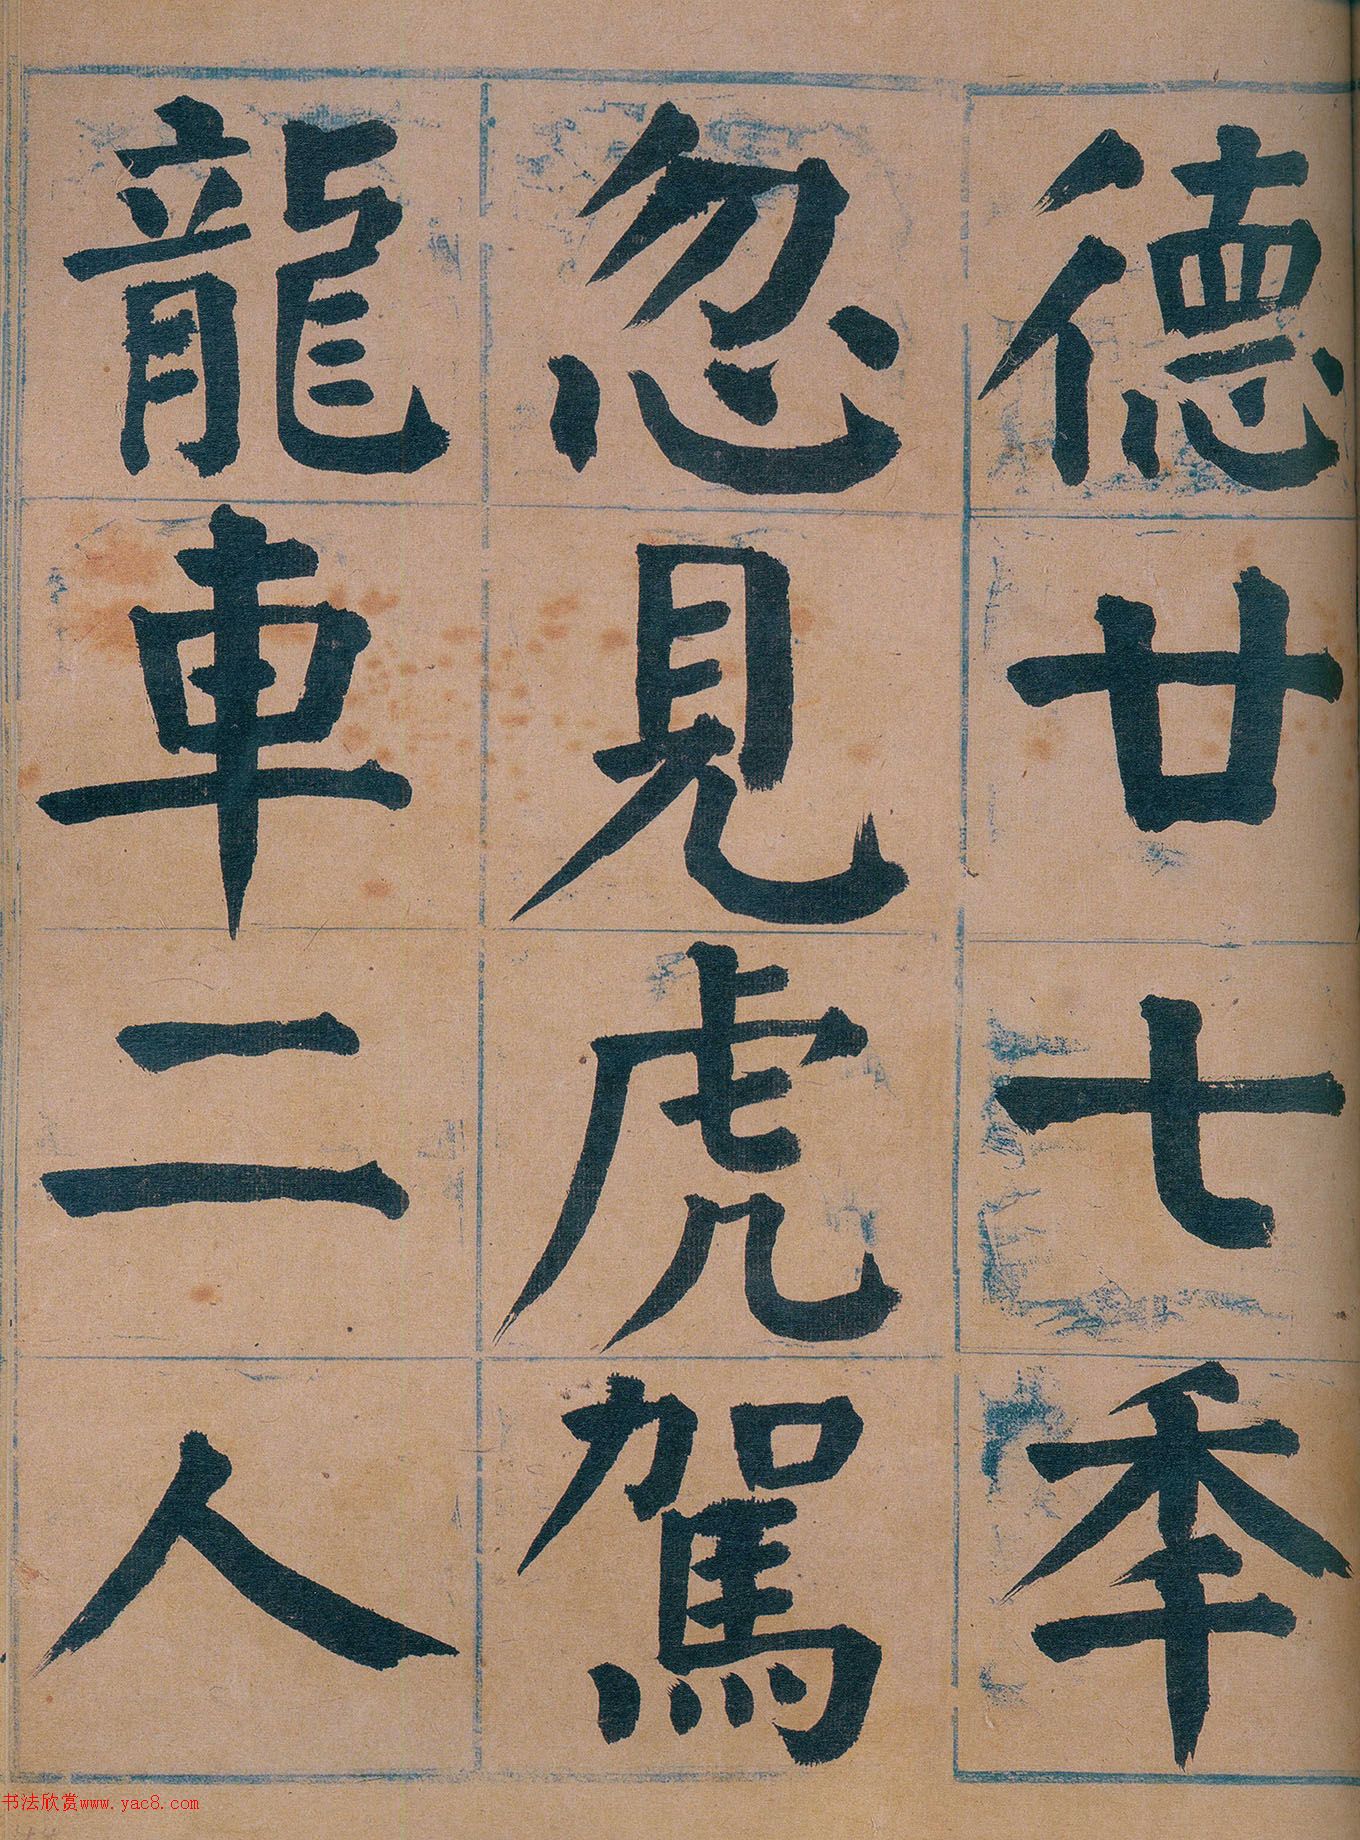 德廿七秊
忽見虎駕
龍車二人
书法欣赏www.yac8.com